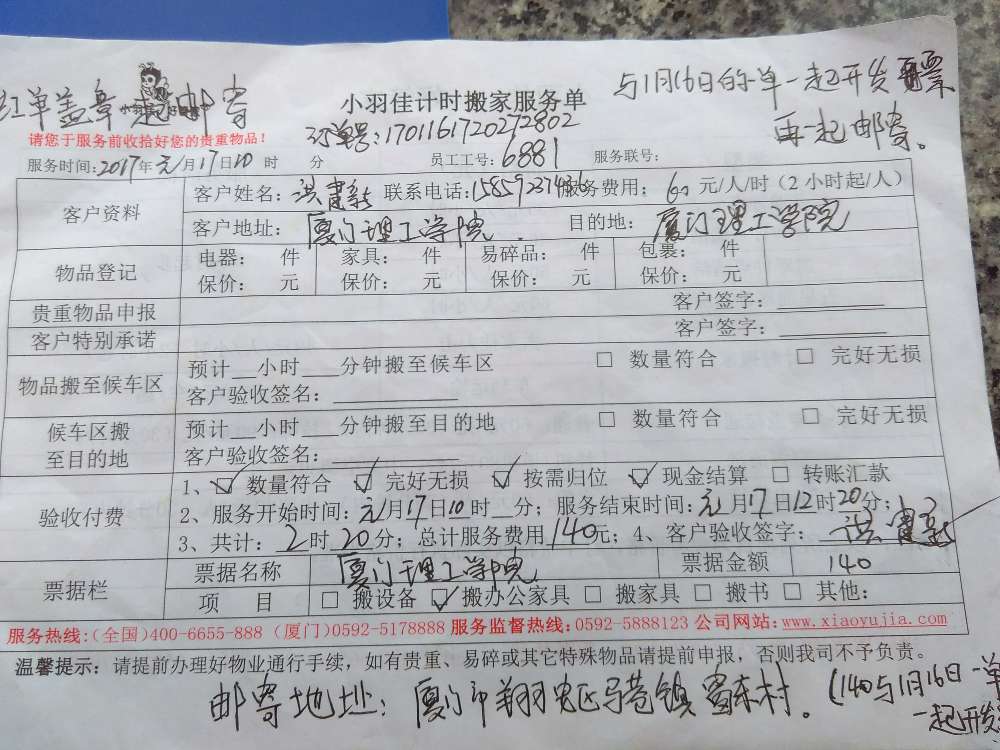 红单盖章一起邮寄
小羽佳计时搬家服务单
与1月16日的单一起开发票
再一起邮寄。
请您于服务前收拾好您的贵重物品！
订单号:1701161720272802
服务时间:2017年元月17日10时 分 员工工号:6881 服务联号:
客户资料
客户姓名: 洪建新 联系电话: 服务费用: 60 元/人/时(2小时起/人)
客户地址: 厦门理工学院. 目的地: 厦门理工学院
物品登记
电器: 件 家具: 件 易碎品: 件 包裹: 件
保价: 元 保价: 元 保价: 元 保价: 元
贵重物品申报 客户签字:
客户特别承诺 客户签字:
物品搬至候车区
预计__小时___分钟搬至候车区 □ 数量符合 □ 完好无损
客户验收签名:
候车区搬至目的地
预计__小时___分钟搬至目的地 □ 数量符合 □ 完好无损
客户验收签名:
验收付费
1、☑ 数量符合 ☑ 完好无损 ☑ 按需归位 ☑ 现金结算 □ 转账汇款
2、服务开始时间:元月17日10时__分; 服务结束时间:元月17日12时20分;
3、共计:2时20分; 总计服务费用140元; 4、客户验收签字: 洪建新
票据栏
票据名称 厦门理工学院 票据金额 140
项 目 □ 搬设备 ☑ 搬办公家具 □ 搬家具 □ 搬书 □ 其他:
服务热线:(全国)400-6655-888 (厦门)0592-5178888 服务监督热线:0592-5888123 公司网站:www.xiaoyujia.com
温馨提示: 请提前办理好物业通行手续，如有贵重、易碎或其它特殊物品请提前申报，否则我司不予负责。
邮寄地址: 厦门市翔安区马巷镇 村。
(140与1月16日一单
一起开发